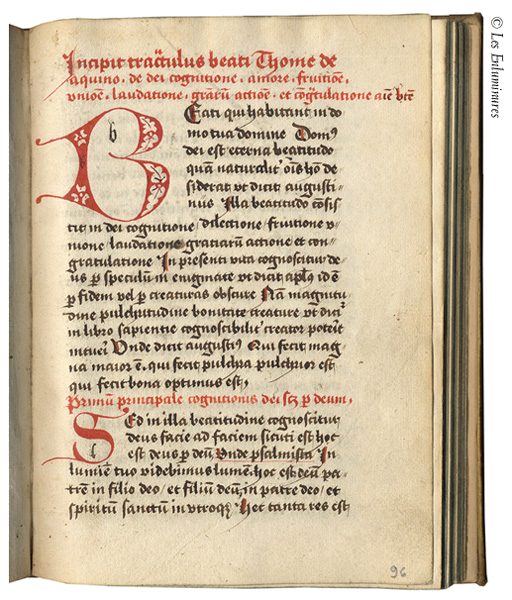 Incipit tractulus beati Thome de
aquino . de dei cognitione . amore . fruitiōe .
vniōe . laudatione . gr̄arū actiōe . et cōgr̄tulatione
BEati qui habitant in do
b
mo tua domine Domꝰ
dei est eterna beatitudo
quā naturalit' oīs hō de
siderat vt dicit augusti⸗
nus Illa beatitudo cōsis
tit in dei cognitione / dilectione / fruitione v⸗
nione / laudatione gratiarū actione et con⸗
gratulatione In presenti vita cognoscitur de⸗
us ꝑ speculū in enigmate vt dicit aplꝰs id ē
ꝑ fidem vel ꝑ creaturas obscure Nā magnitu⸗
dine pulchitudine bonitate creature vt dicit²
in libro sapientie cognoscibilit' creator poterit
intueri Vnde dicit augustiꝰ Qui fecit mag⸗
na maior ē. qui fecit pulchra pulchrior est
qui fecit bona optimus est,
Primū principale cognitionis dei scꝫ ꝑ deum,
SEd in illa beatitudine cognoscitur
deus facie ad faciem sicuti est hoc
est deus ꝑ deū Vnde psalmista In
lumīe tuo videbimus lumen hoc est deū pa⸗
trē in filio deo / et filiū deū in patre deo / et
spiritū sanctū in vtroqꝫ Hec tanta res est
96
© Les Enluminures